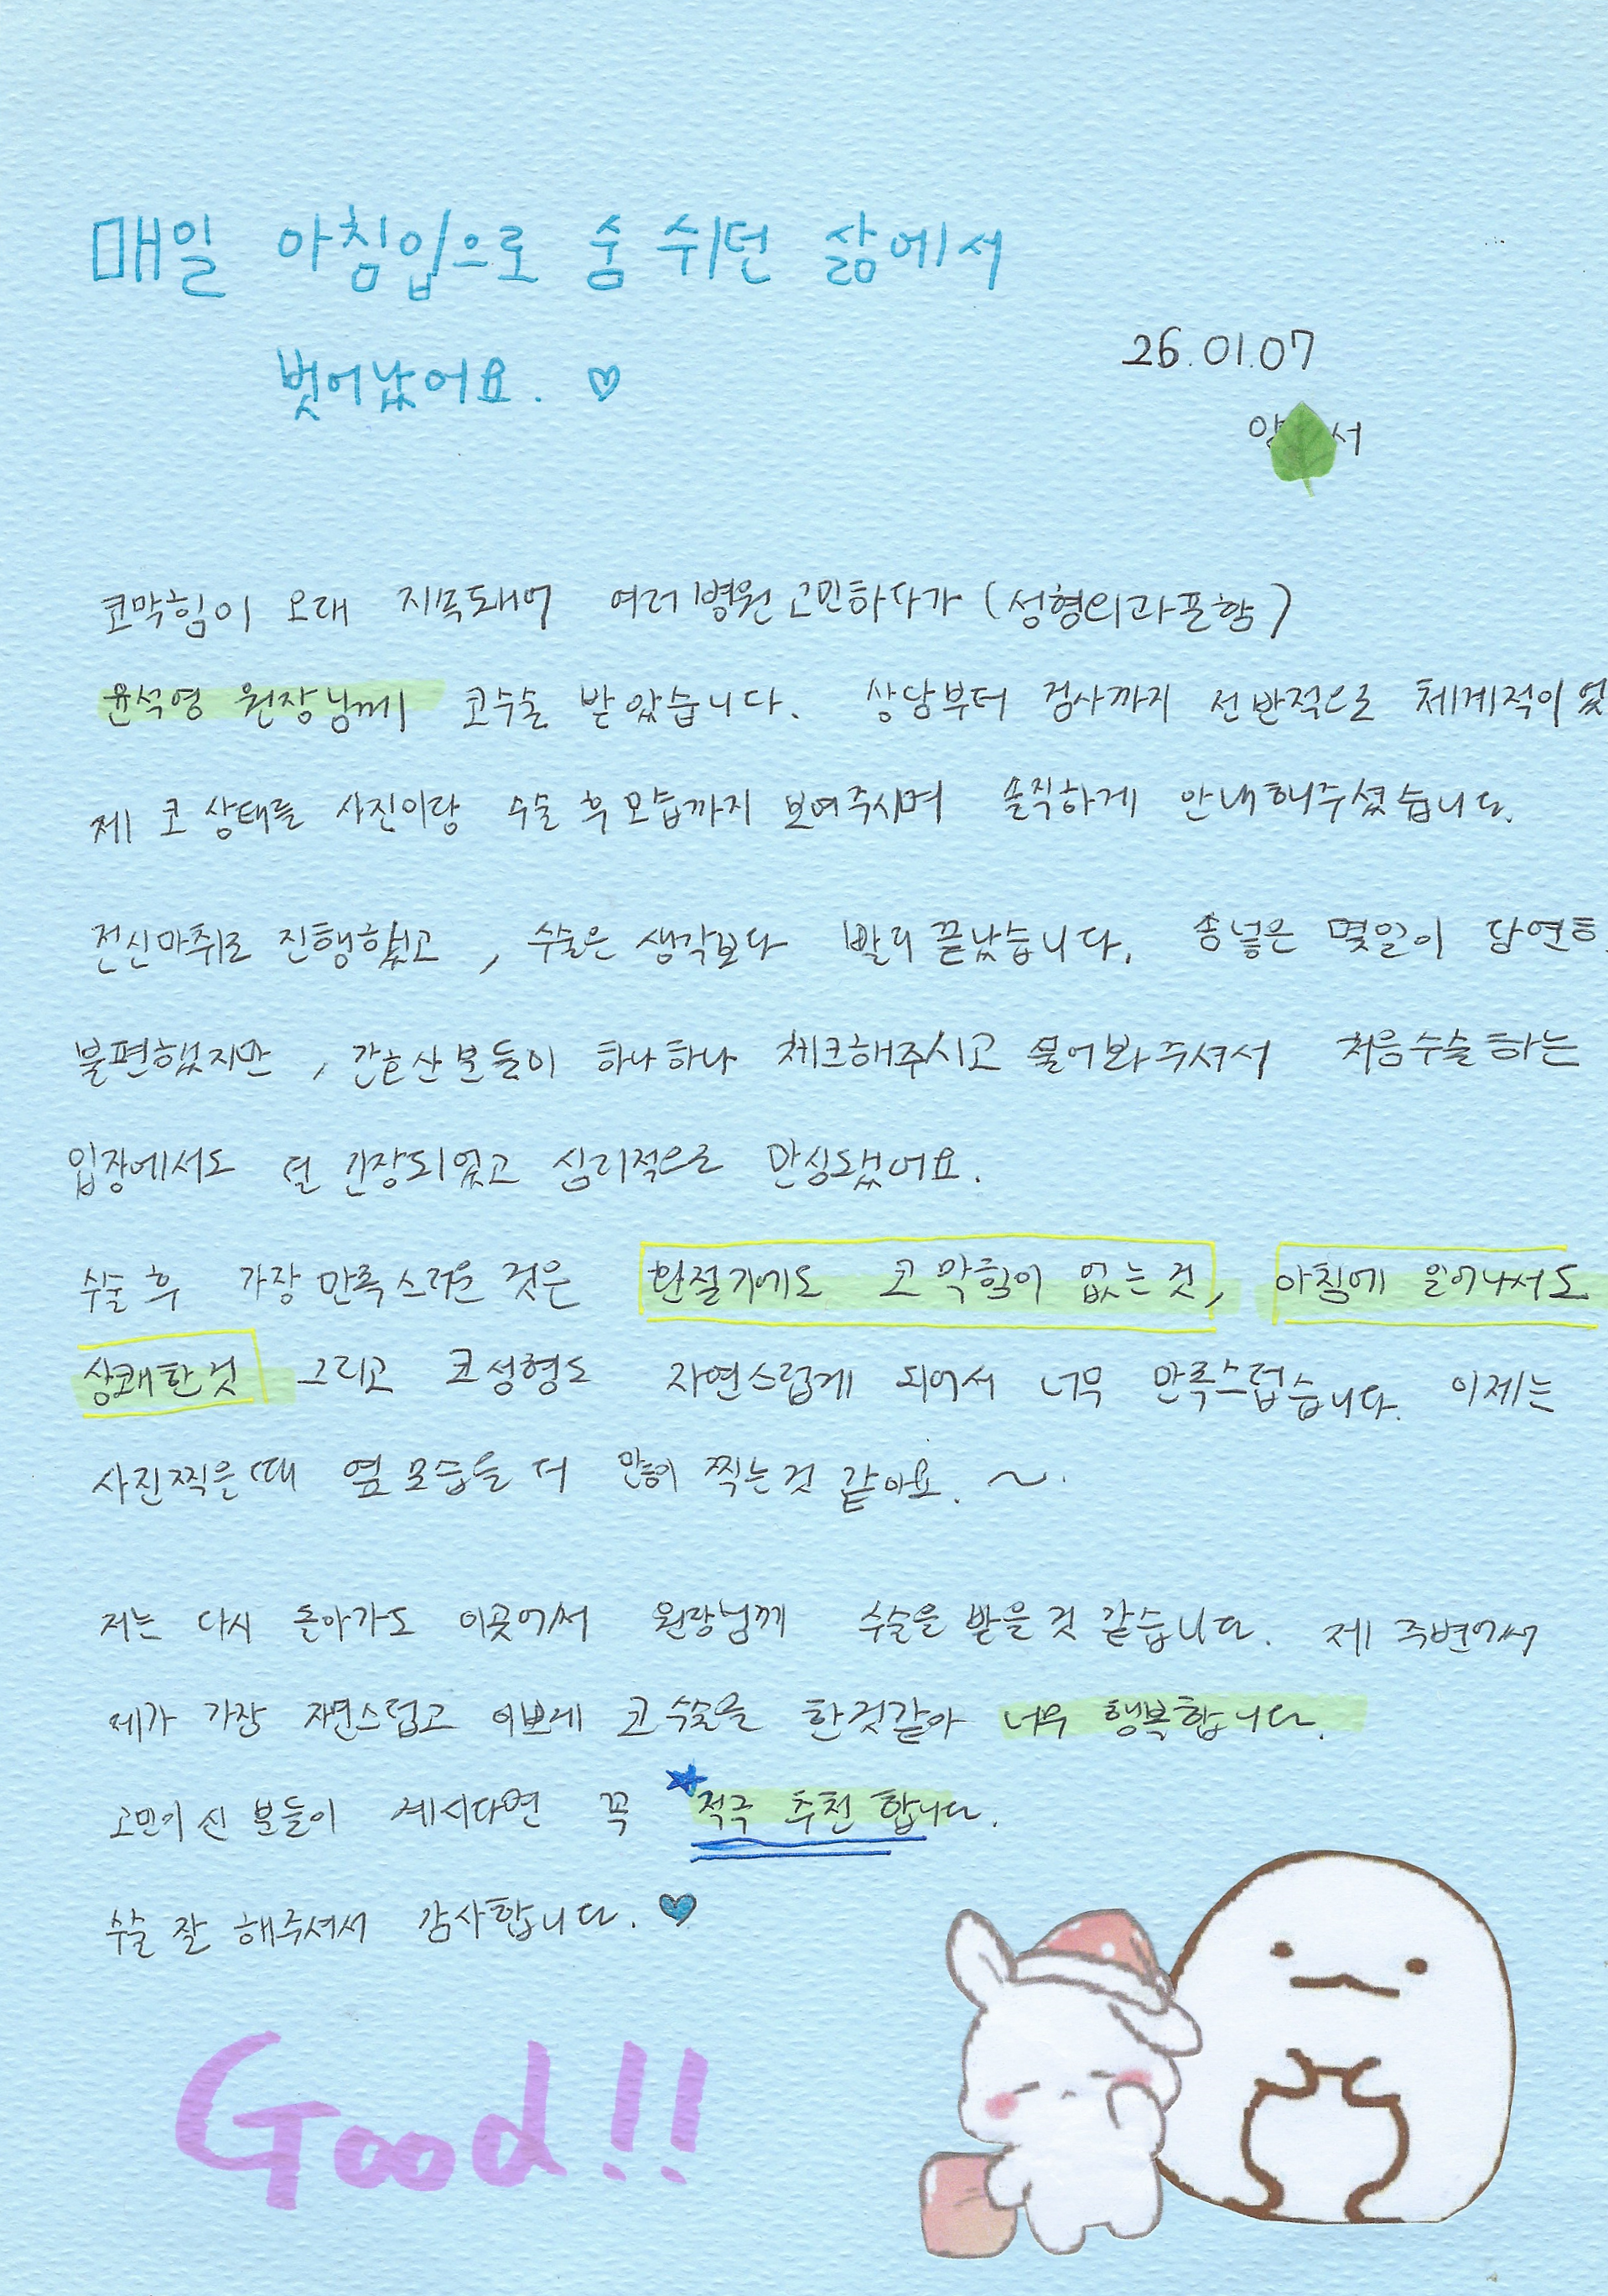 매일 아침입으로 숨 쉬던 삶에서
벗어났어요. ♡
26.01.07
양 서
코막힘이 오래 지속돼어 여러병원 고민하다가 (성형외과포함)
윤석영 원장님께 코수술 받았습니다. 상담부터 검사까지 전반적으로 체계적이었
제 코 상태를 사진이랑 수술 후 모습까지 보여주시며 솔직하게 안내해주셨습니다.
전신마취로 진행했고, 수술은 생각보다 빨리 끝났습니다. 솜넣은 몇일이 당연히
불편했지만, 간호산분들이 하나하나 체크해주시고 물어봐주셔서 처음수술하는
입장에서도 덜 긴장되었고 심리적으로 안심됐어요.
수술 후 가장 만족스러운 것은 환절기에도 코막힘이 없는것, 아침에 일어나서도
상쾌한것 그리고 코성형도 자연스럽게 되어서 너무 만족스럽습니다. 이제는
사진찍은때 옆모습을 더 많이 찍는것 같아요. ~.
저는 다시 돌아가도 이곳에서 원장님께 수술을 받을것 같습니다. 제 주변에서
제가 가장 자연스럽고 이쁘게 코수술을 한것같아 너무 행복합니다.
고민이신 분들이 계시다면 꼭 ★적극 추천 합니다.
수술 잘 해주셔서 감사합니다. ♥
Good!!